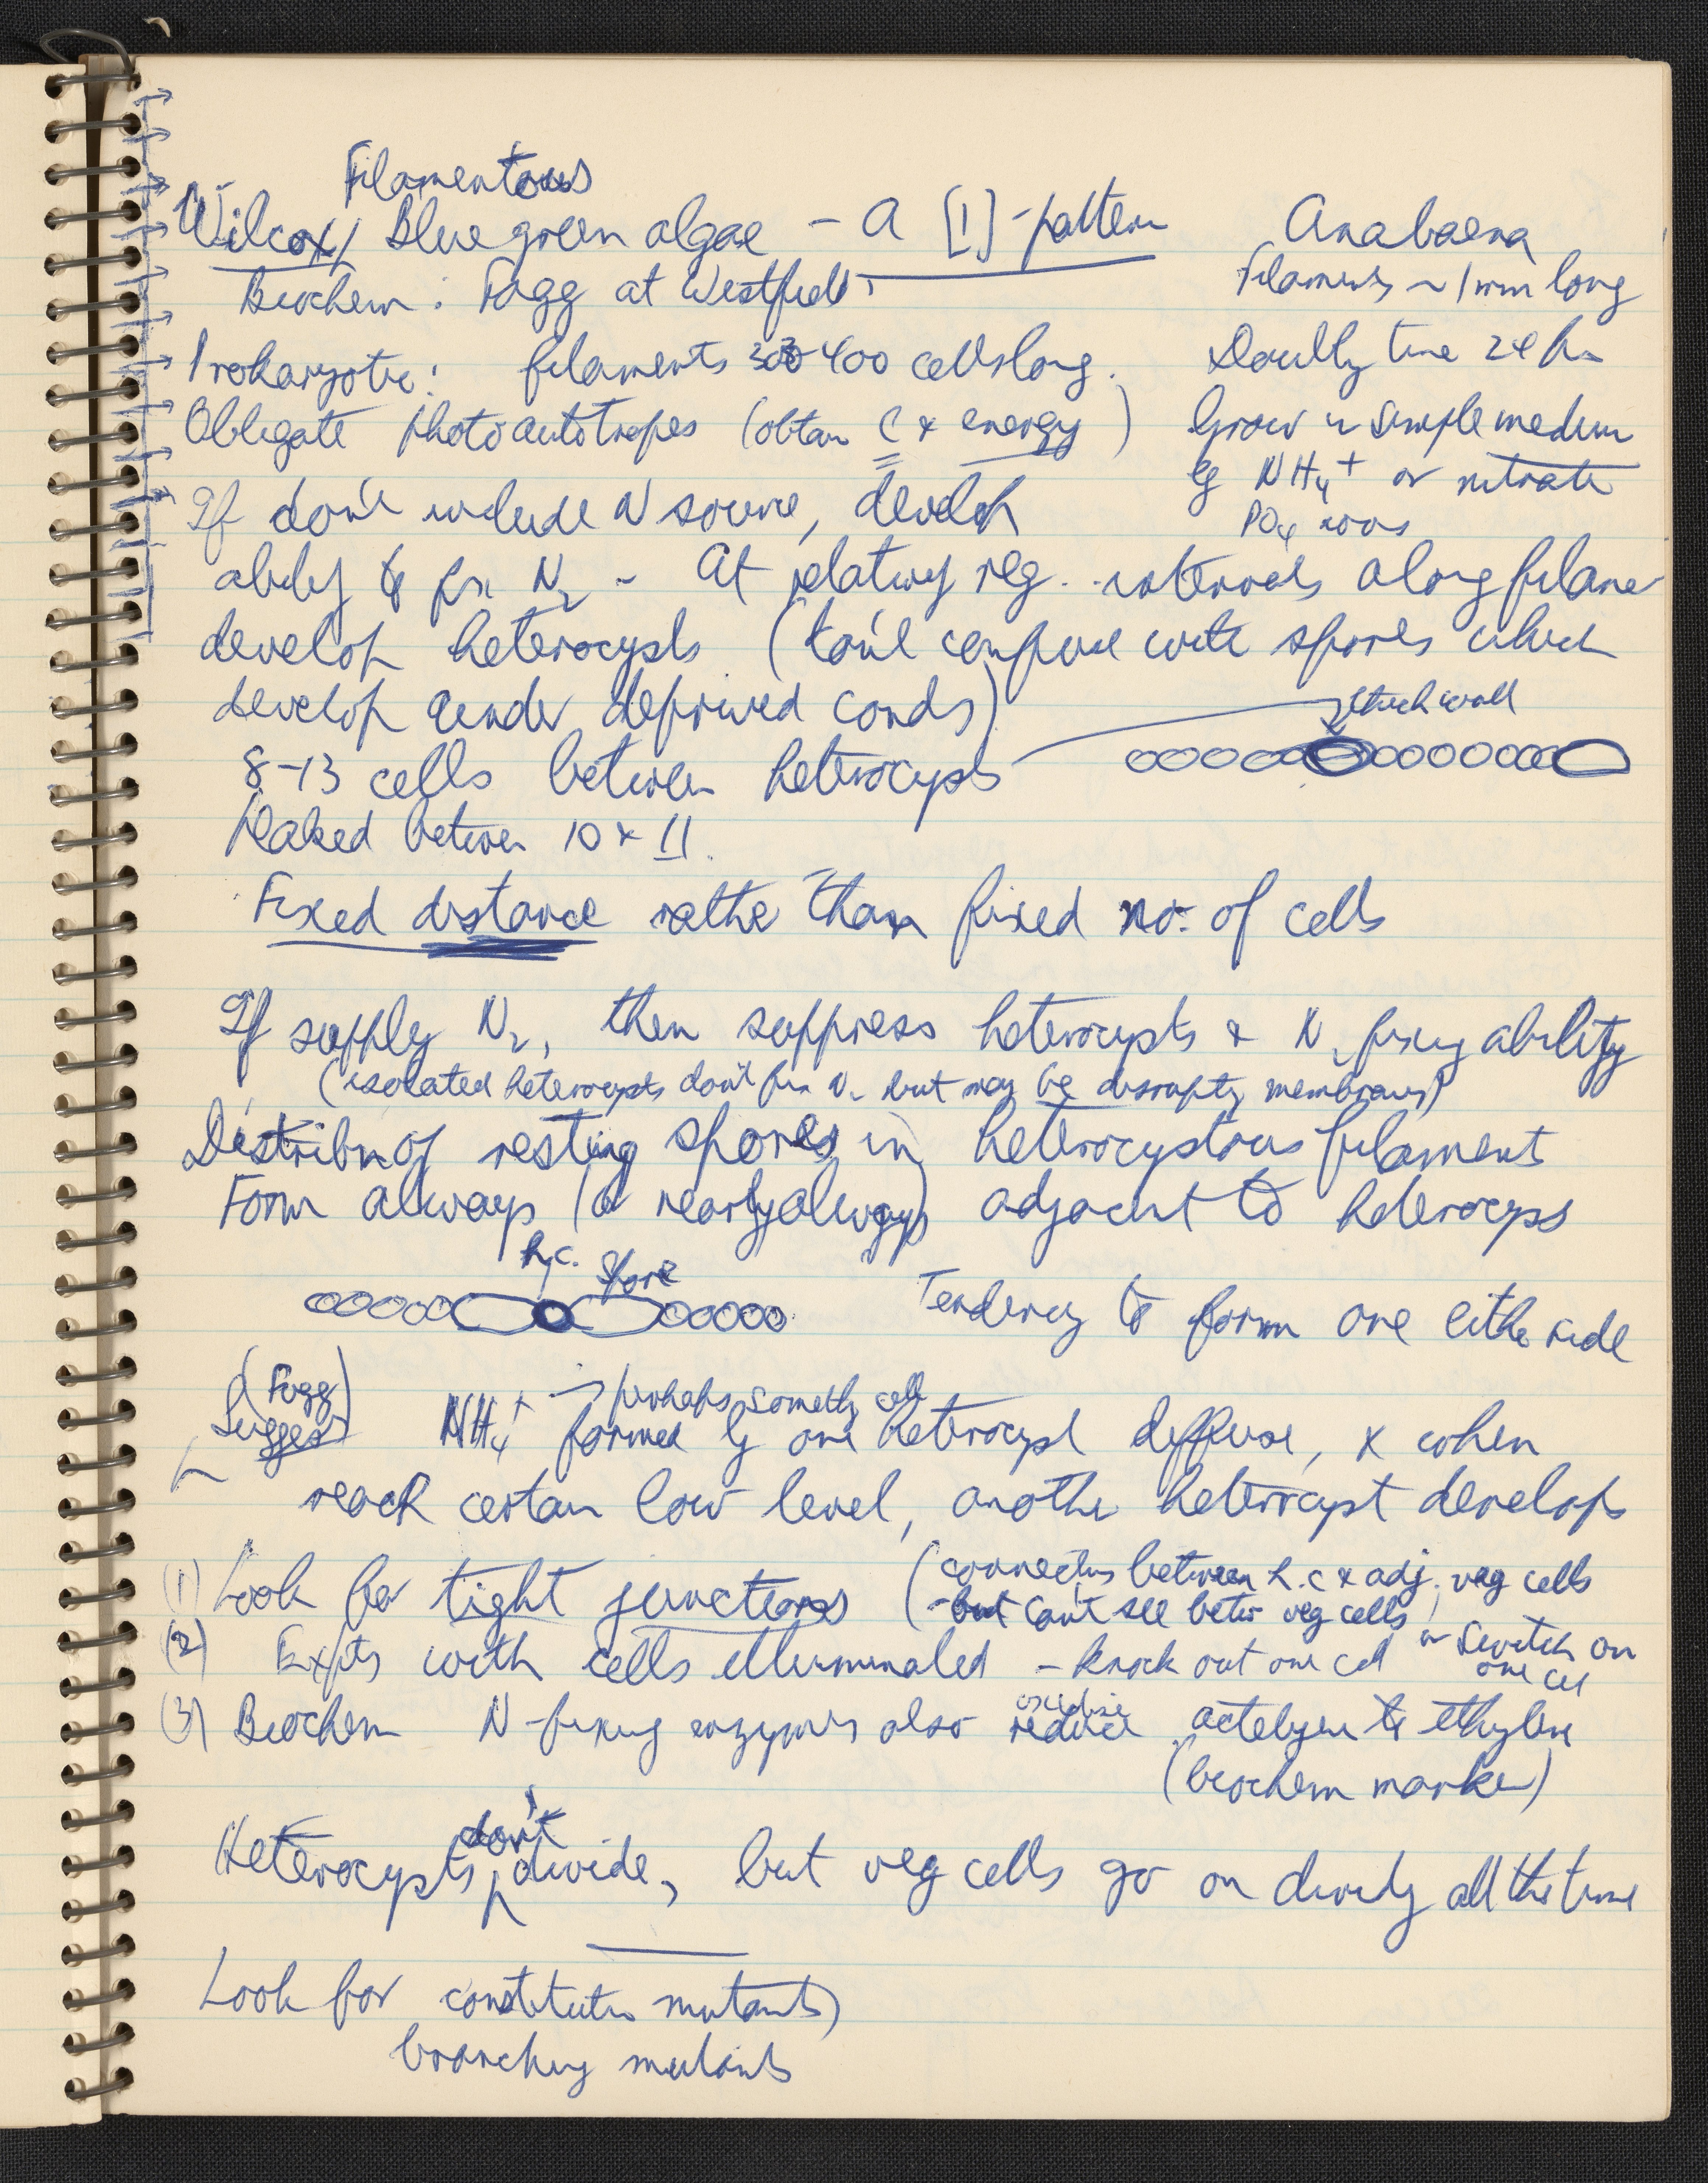 Filamentous
Wilcox / Blue green algae – a [1]-pattern
Biochem: Fogg at Westfield.
Prokaryotic: filaments 300-400 cells long.
Obligate photoautotropes (obtain C & energy)
Anabaena
Filaments ~ 1 mm long
Doubly time 24 hr
Grow in simple medium
eg NH4+ or nitrate
PO4 ions
If don't include N source, develop
ability to fix N2 - At relatively reg. intervals along filame
develop heterocysts (don't confuse with spores which
develop under deprived conds)
thick wall
8-13 cells between heterocysts
Peaked between 10 & 11.
Fixed distance rather than fixed no. of cells
If supply N2, then suppress heterocysts & N2 fixing ability
(isolated heterocysts don't fix N2 but may be disrupting membranes)
Distribn of resting spores in heterocystous filaments
Form always (or nearly always) adjacent to heterocysts
h.c. Spore
Tendency to form one either side
(Fogg)
Suggest
perhaps somethg else
NH4+ formed by one heterocyst diffuse, & when
reach certain low level, another heterocyst develops
(1) Look for tight junctions (connectns between h.c & adj. veg cells
- but can't see betw veg cells)
(2) Expts with cells illuminated - knock out one cell or switch on
one cell
oxidise
(3) Biochem N-fixing enzymes also reduce actelyene to ethylene
(biochem marker)
don't
Heterocysts divide, but veg cells go on dividg all the time
Look for constitutive mutants)
branching mutants